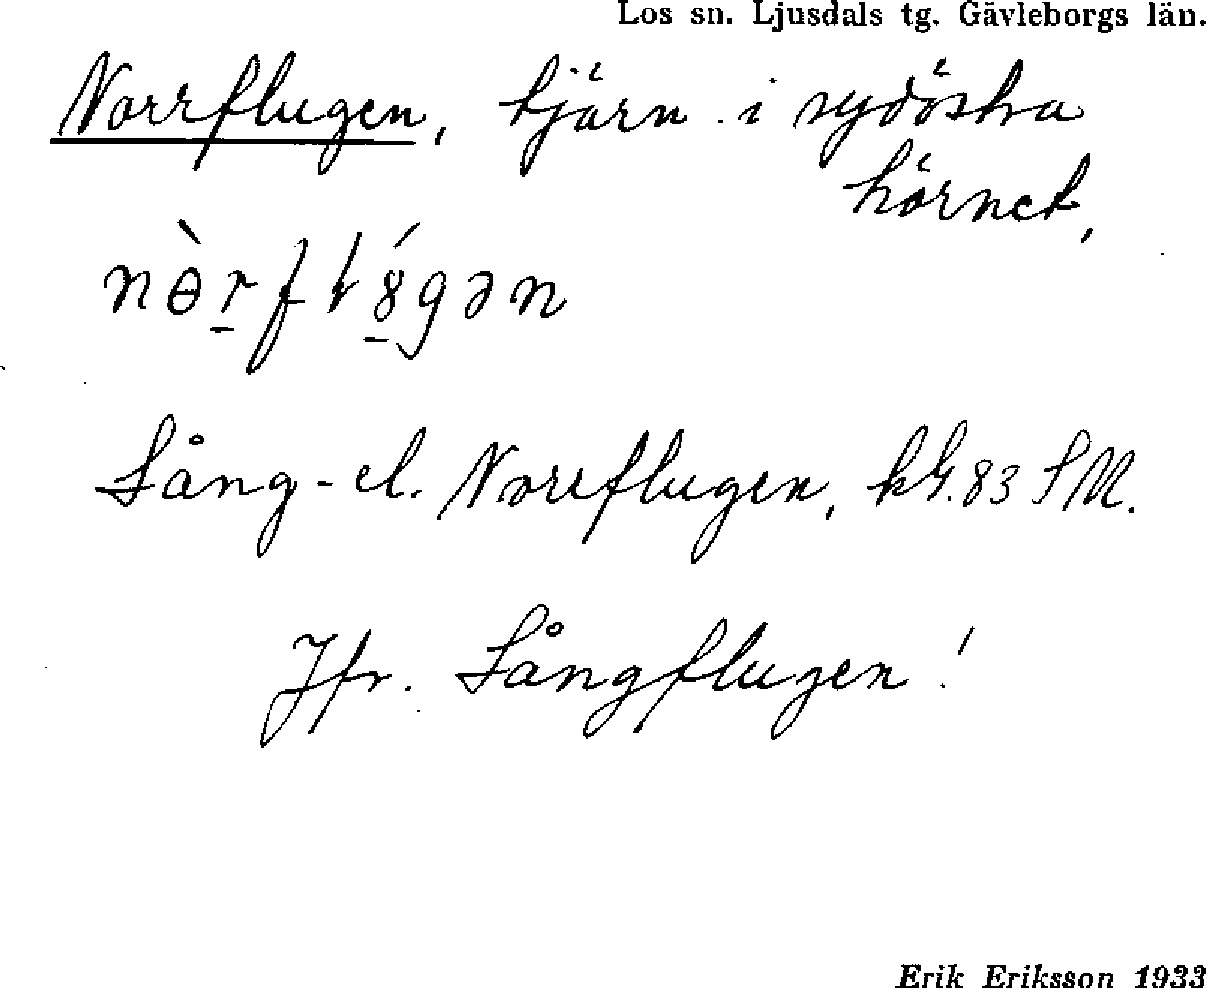 Los sn. Ljusdals tg. Gävleborgs län.
Norrflugen, tjärn i sydöstra
hörnet,
Lång- el. Norrflugen, kG.83 SM.
Jfr. Långflugen!
Erik Eriksson 1933